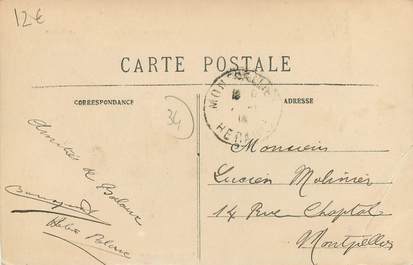 12€
CARTE POSTALE
MONTPELLIER
HERAULT
CORRESPONDANCE
ADRESSE
34
Amitiés de
Monsieur
Lucien Molinier
14 Rue Chaptal
Montpellier